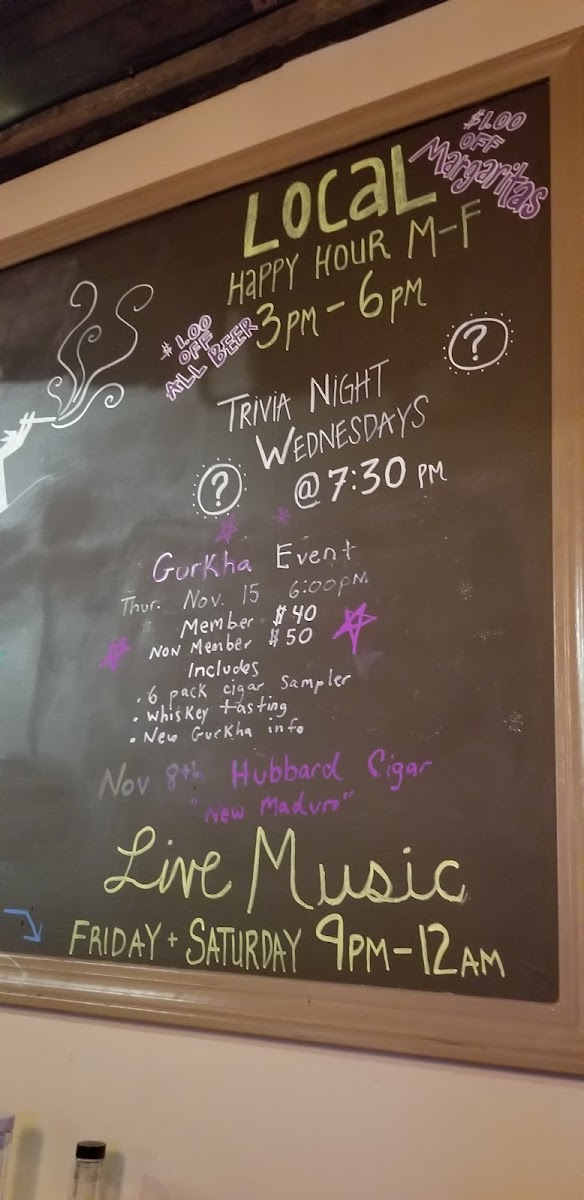 $1.00
OFF
Margaritas
LOCAL
HAPPY HOUR M-F
3PM - 6PM
$1.00
OFF
ALL BEER
?
TRIVIA NIGHT
WEDNESDAYS
@ 7:30 PM
?
Gurkha Event
Thur. Nov. 15 6:00pm
Member $40
Non Member $50
Includes
• 6 pack cigar sampler
• Whiskey tasting
• New Gurkha info
Nov 8th Hubbard Cigar
"New Maduro"
Live Music
FRIDAY + SATURDAY 9PM-12AM